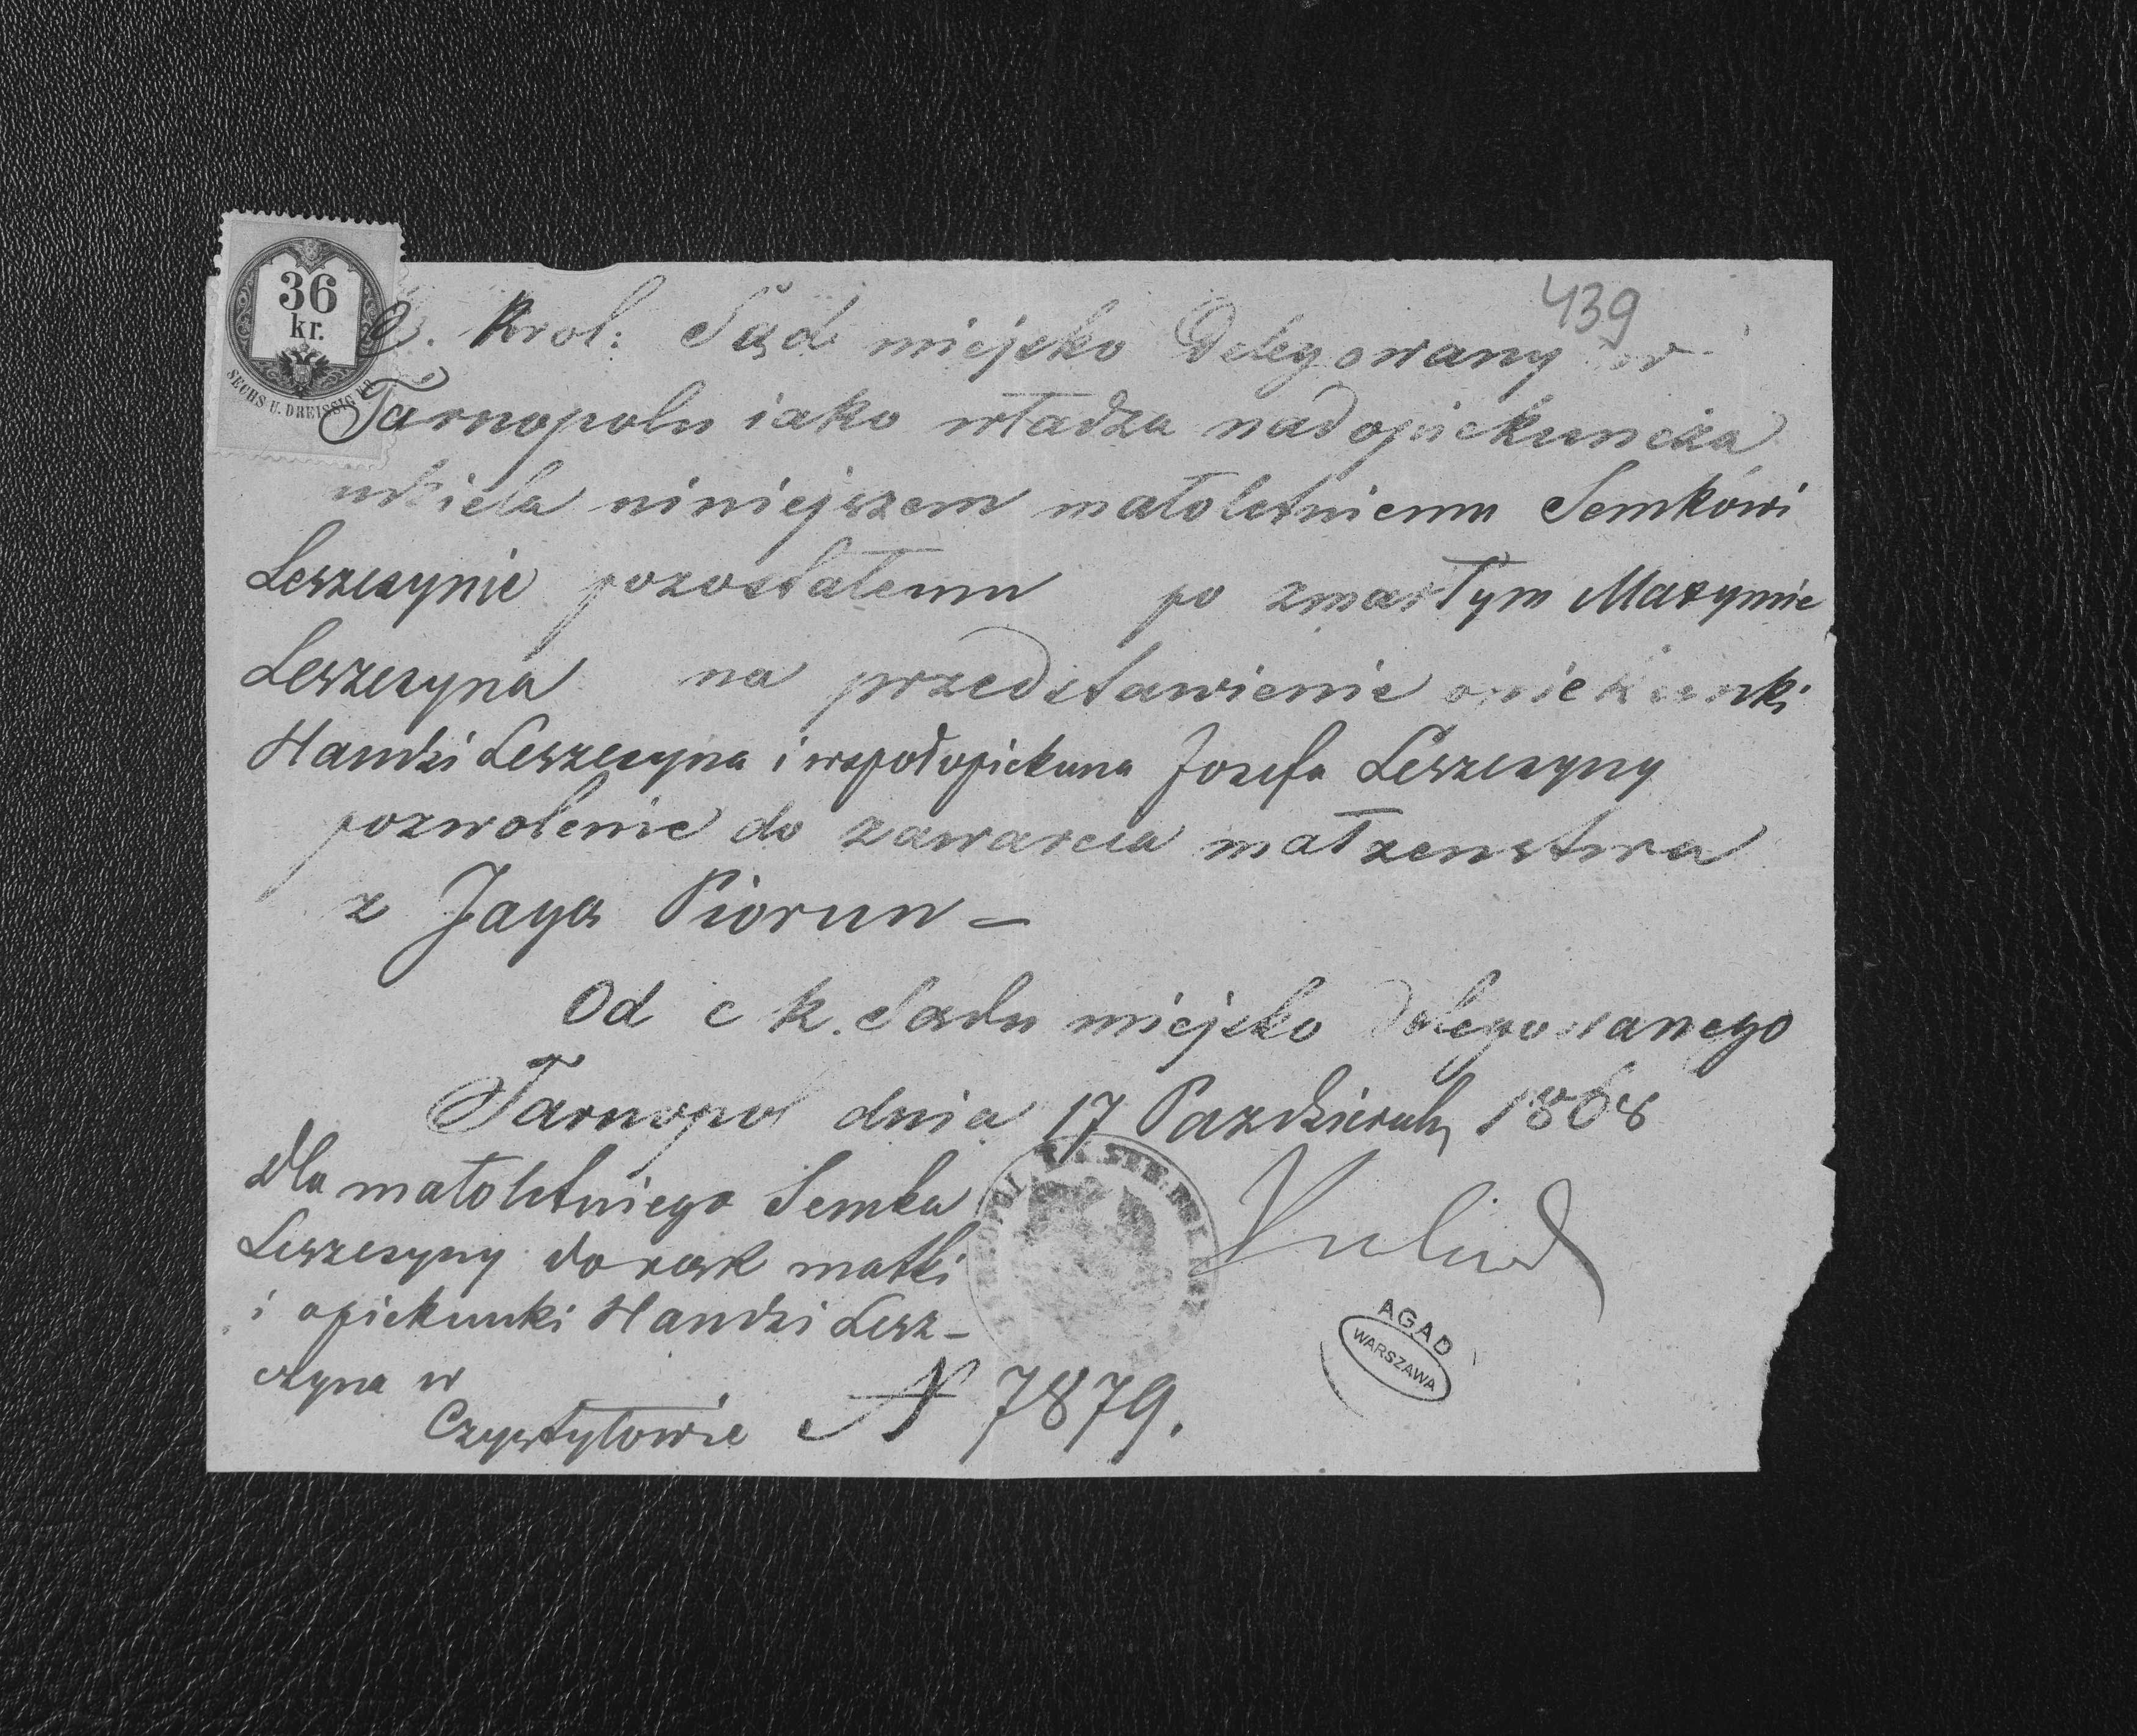 439
36
kr.
SECHS U. DREISSIG KR.
C. Krol: Sąd miejsko Delegowany w
Tarnopolu iako władza nadopiekuńcza
udziela niniejszem małoletniemu Semkówi
Leszczynie pozostałemu po zmarłym Maxymie
Leszczyna na przedstawienie opiekunki
Handzi Leszczyna i współopiekuna Jozefa Leszczyny
pozwolenie do zawarcia małzenstwa
z Jagą Piorun –
Od c k. Sadu miejsko Delegowanego
Tarnopol dnia 17 Pazdziernk 1868
dla małoletniego Semka
Leszczyny do rąk matki
i opiekunki Handzi Lesz–
czyna w
Czystyłowie N 7879.
AGAD
WARSZAWA